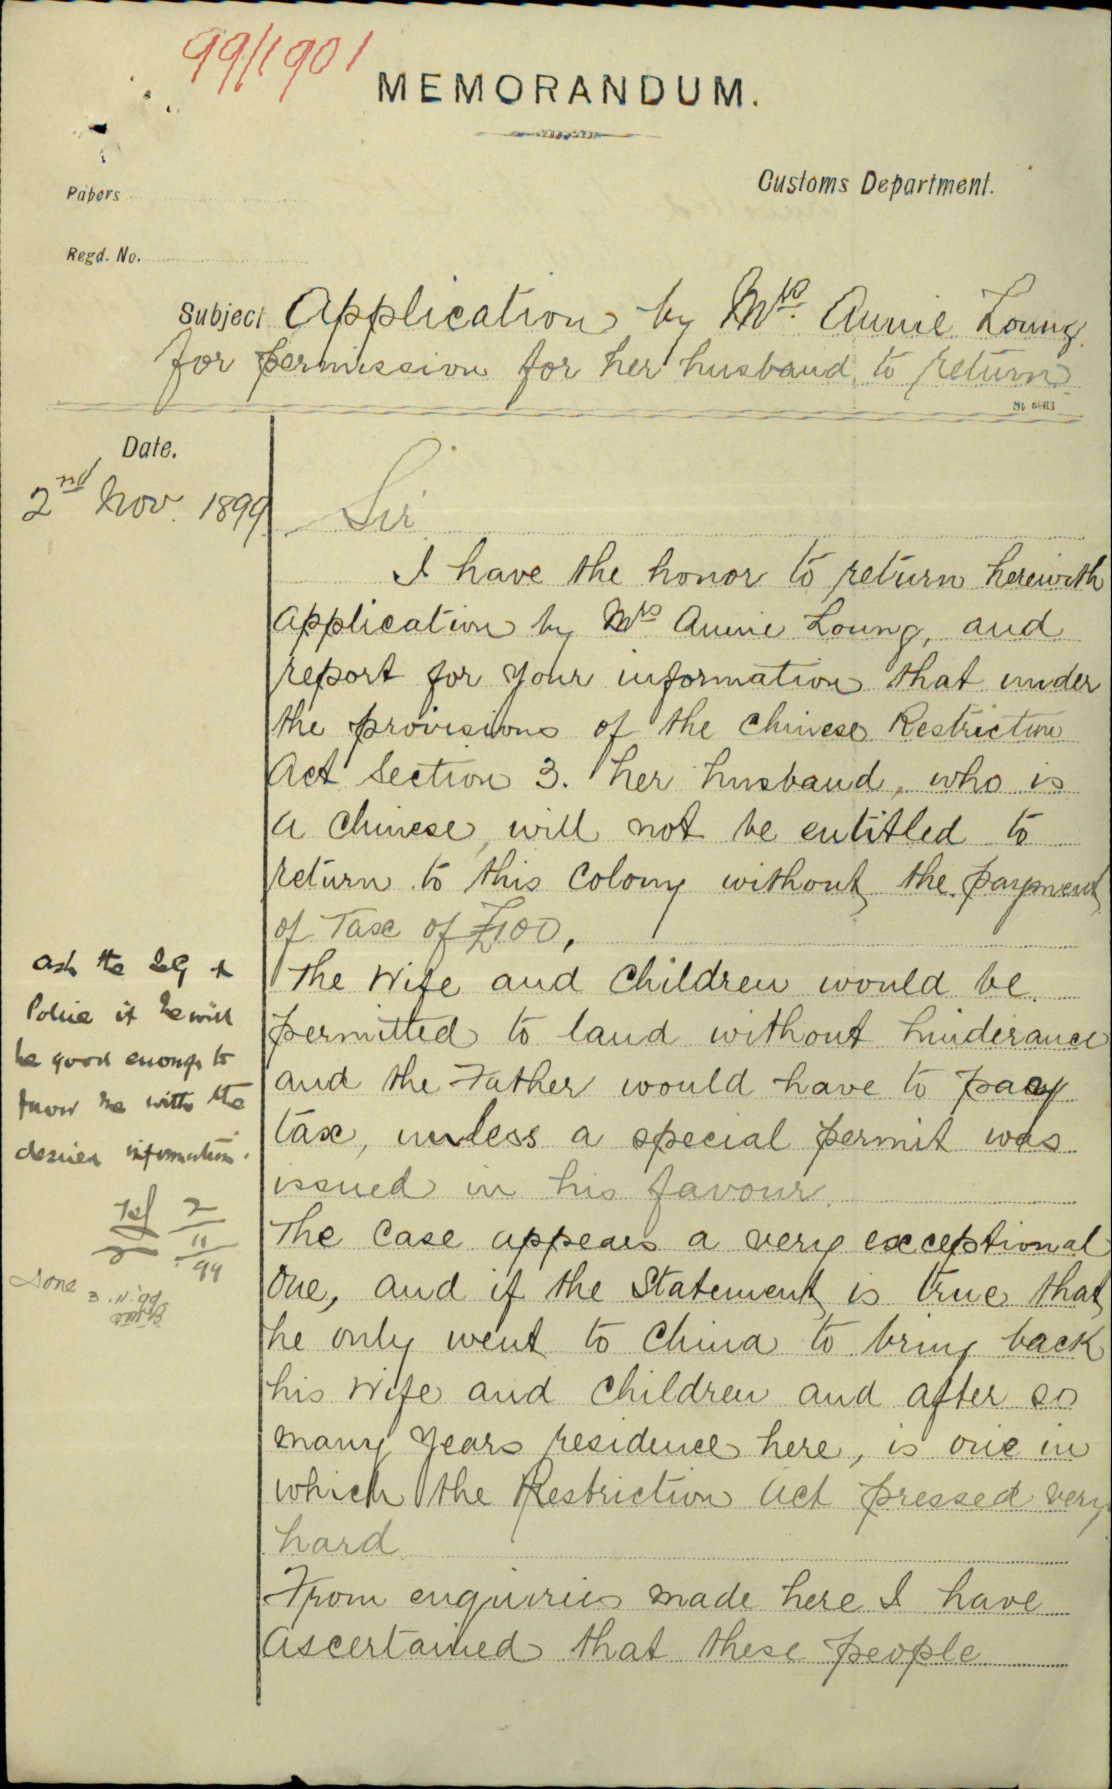 99/1901
MEMORANDUM.
Customs Department.
Papers
Regd. No.
Subject Application by Mrs. Annie Loung
for permission for her husband to return
Date.
2nd Nov. 1899
Sir
I have the honor to return herewith
application by Mrs Annie Loung, and
report for your information that under
the provisions of the Chinese Restriction
Act Section 3. her husband, who is
a Chinese, will not be entitled to
return to this Colony without the payment
of Tax of £100.
The Wife and Children would be
permitted to land without hinderance
and the Father would have to pay
tax, unless a special permit was
issued in his favour.
The Case appears a very exceptional
One, and if the Statement is true that
he only went to China to bring back
his Wife and Children and after so
many years residence here, is one in
which the Restriction Act pressed very
hard
From enquiries made here I have
ascertained that these people
Ask the IG of
Police if he will
be good enough to
favor me with the
desired information.
2
11
99
Done
3.11.99